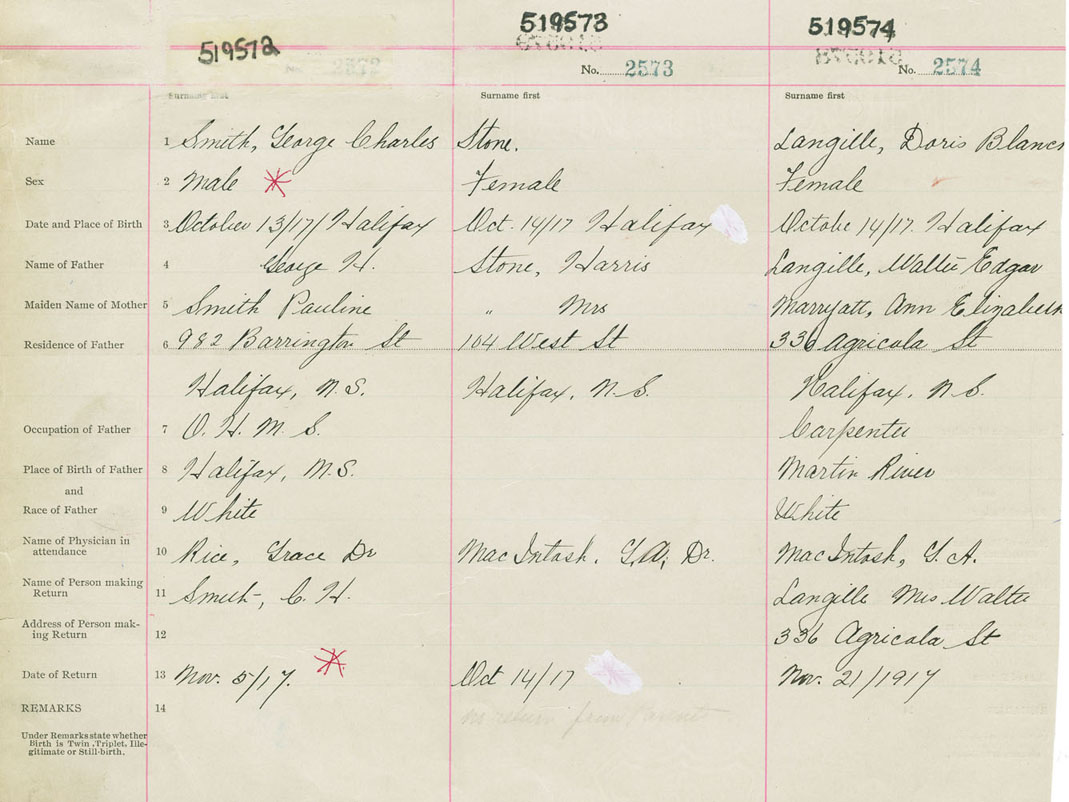 519572
519573
519574
2572
No. 2573
No. 2574
Surname first
Surname first
Surname first
Name 1 Smith, George Charles Stone. Langille, Doris Blanc
Sex 2 Male Female Female
Date and Place of Birth 3 October 13/17/ Halifax Oct. 14/17 Halifax Octobe 14/17. Halifax
Name of Father 4 George H. Stone, Harris Langille, Walter Edgar
Maiden Name of Mother 5 Smith Pauline " Mrs Marryatt, Ann Elizabeth
Residence of Father 6 982 Barrington St 104 West St 336 Agricola St
Halifax, N.S. Halifax, N.S. Halifax, N.S.
Occupation of Father 7 O. H. M. S. Carpenter
Place of Birth of Father 8 Halifax, N.S. Martin River
and
Race of Father 9 White White
Name of Physician in
attendance 10 Rice, Grace Dr MacIntosh, G.A; Dr. MacIntosh, G. A.
Name of Person making
Return 11 Smith, C. H. Langille Mrs Walter
Address of Person mak-
ing Return 12 336 Agricola St
Date of Return 13 Nov. 5/17. Oct 14/17 Nov. 21/1917
REMARKS 14 no return from Parents
Under Remarks state whether
Birth is Twin, Triplet, Ille-
gitimate or Still-birth.